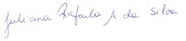 Juliana Rafaela A. da Silva